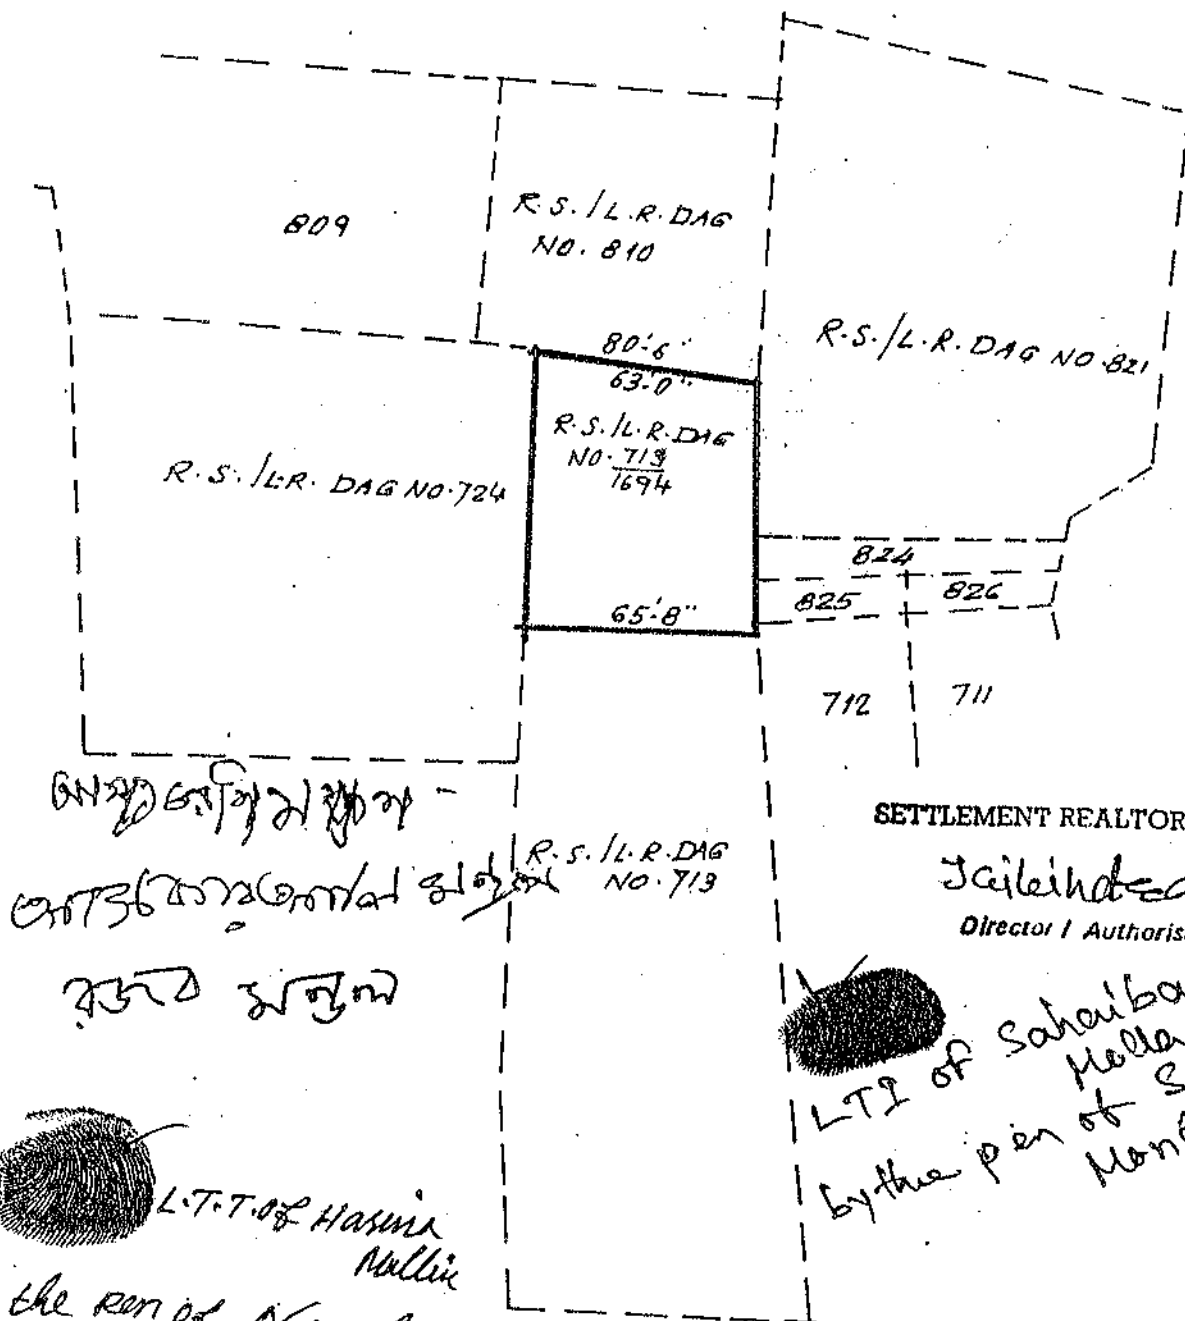 809
R.S./L.R. DAG
NO. 810
R.S./L.R. DAG NO. 821
80'-6"
63'-0"
R.S./L.R. DAG
NO. 713
1694
R.S./L.R. DAG NO. 724
824
825
826
65'-8"
712
711
SETTLEMENT REALTOR
R.S./L.R. DAG
NO. 713
Director / Authoris
রজব মন্ডল
LTI of Sahaiba
Molla
by the pen of S
L.T.T. of Hasina
Mallik
the Pen of